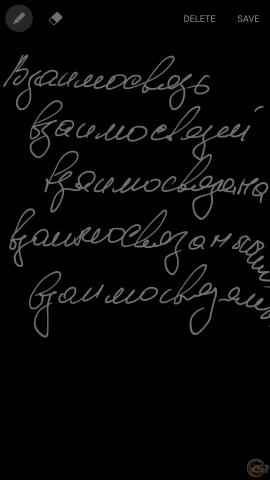 DELETE SAVE
Взаимосвязь
взаимосвязей
взаимосвязана
взаимосвязанный
взаимосвязями